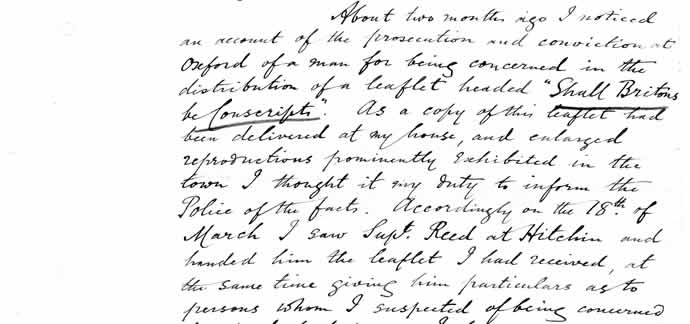 About two months ago I noticed
an account of the prosecution and conviction at
Oxford of a man for being concerned in the
distribution of a leaflet headed "Shall Britons
be Conscripts". As a copy of this leaflet had
been delivered at my house, and enlarged
reproductions prominently exhibited in the
town I thought it my duty to inform the
Police of the facts. Accordingly on the 18th. of
March I saw Supt. Reed at Hitchin and
handed him the leaflet I had received, at
the same time giving him particulars as to
persons whom I suspected of being concerned